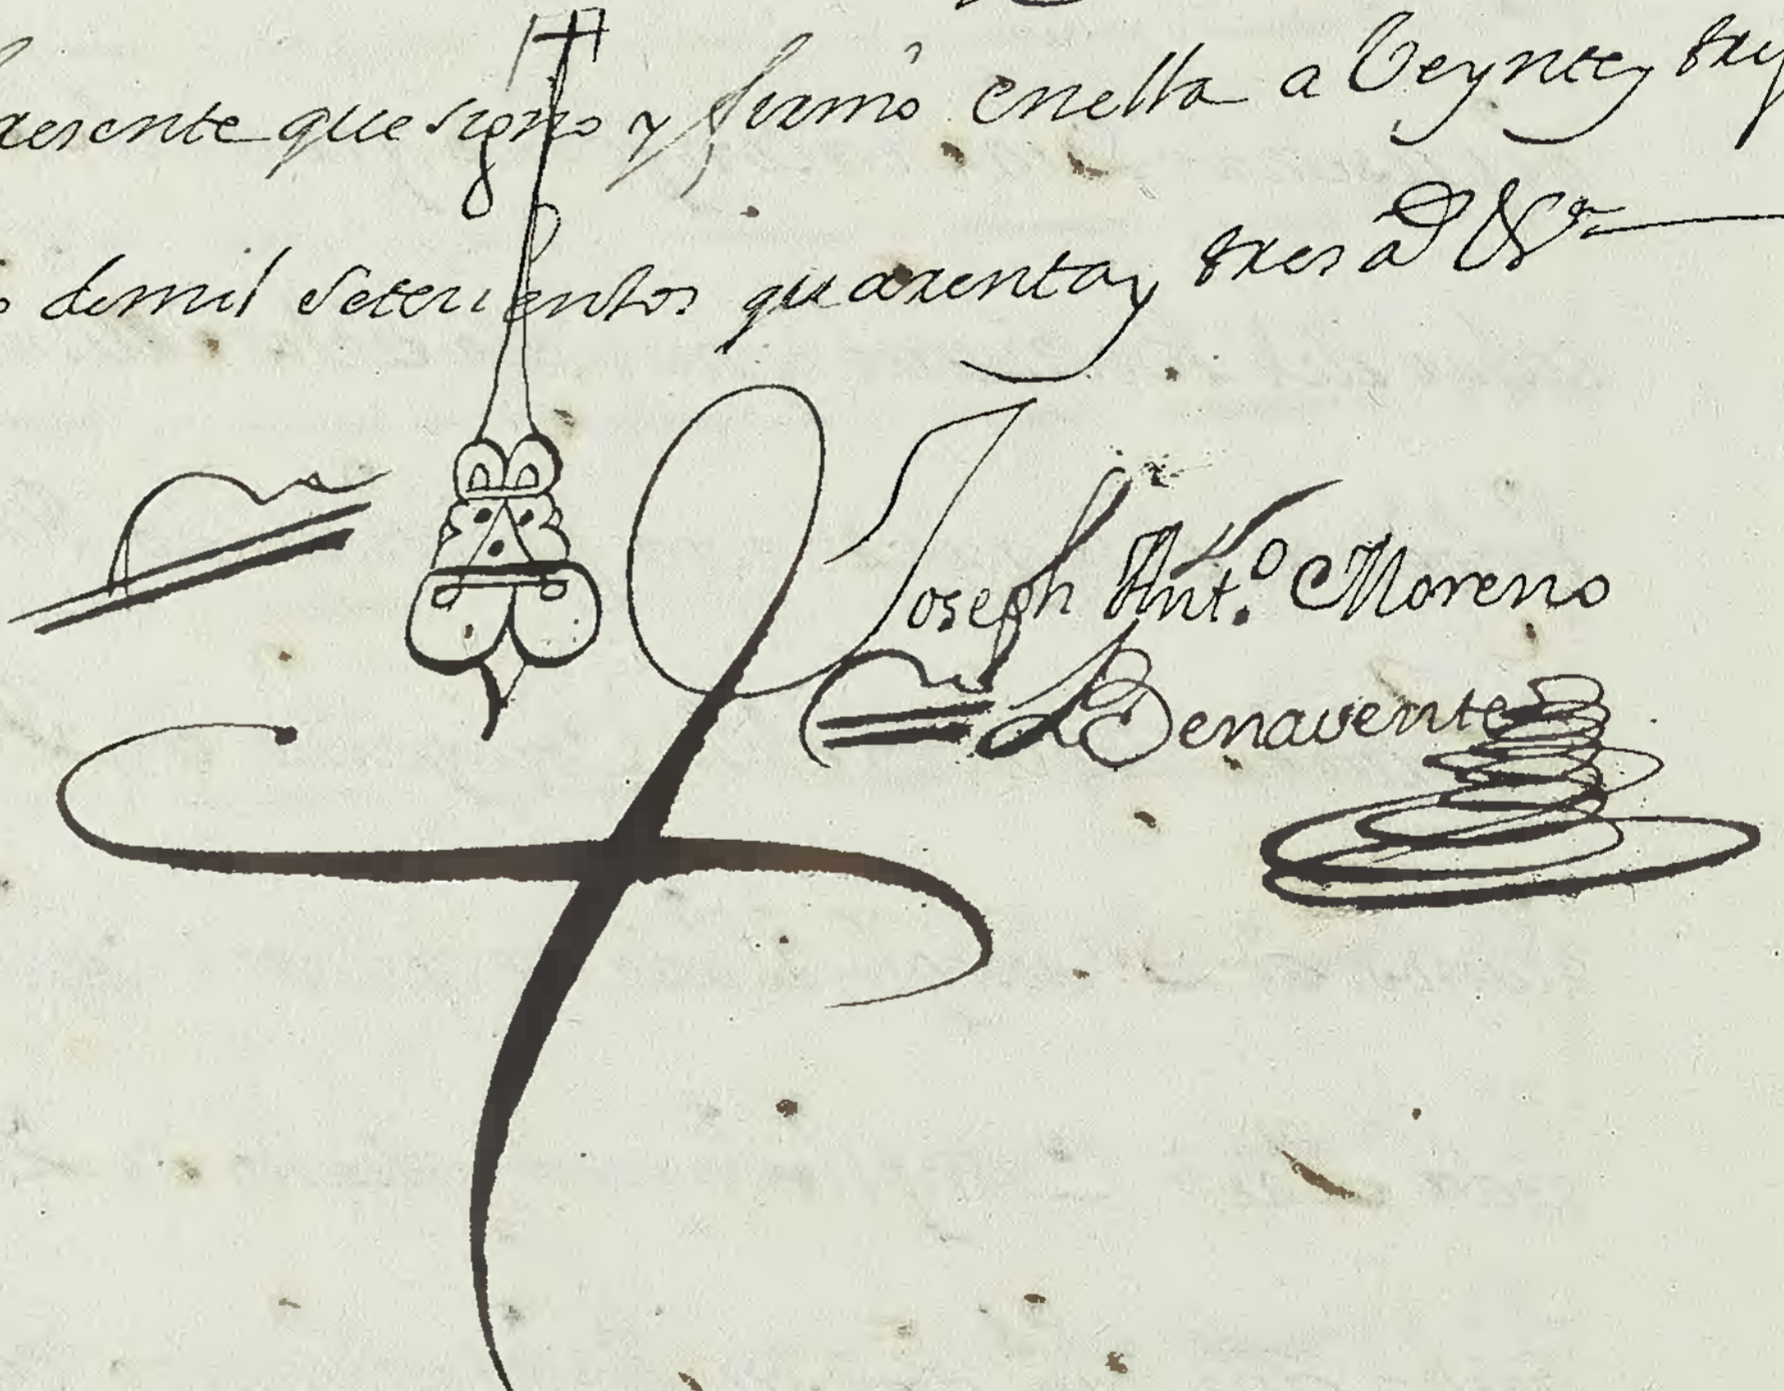 presente que signo y firmo enella a Veynte y
demil setecientos quarenta y tres a
Joseph Ant.º Moreno
Benavente